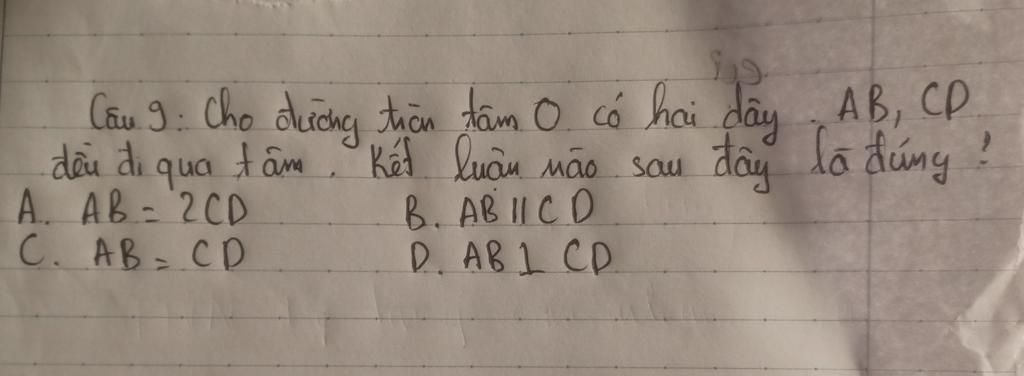 Câu 9: Cho đường tròn tâm O có hai dây AB, CD
đều đi qua tâm. Kết luận nào sau đây là đúng?
A. AB = 2CD B. AB // CD
C. AB = CD D. AB ⊥ CD